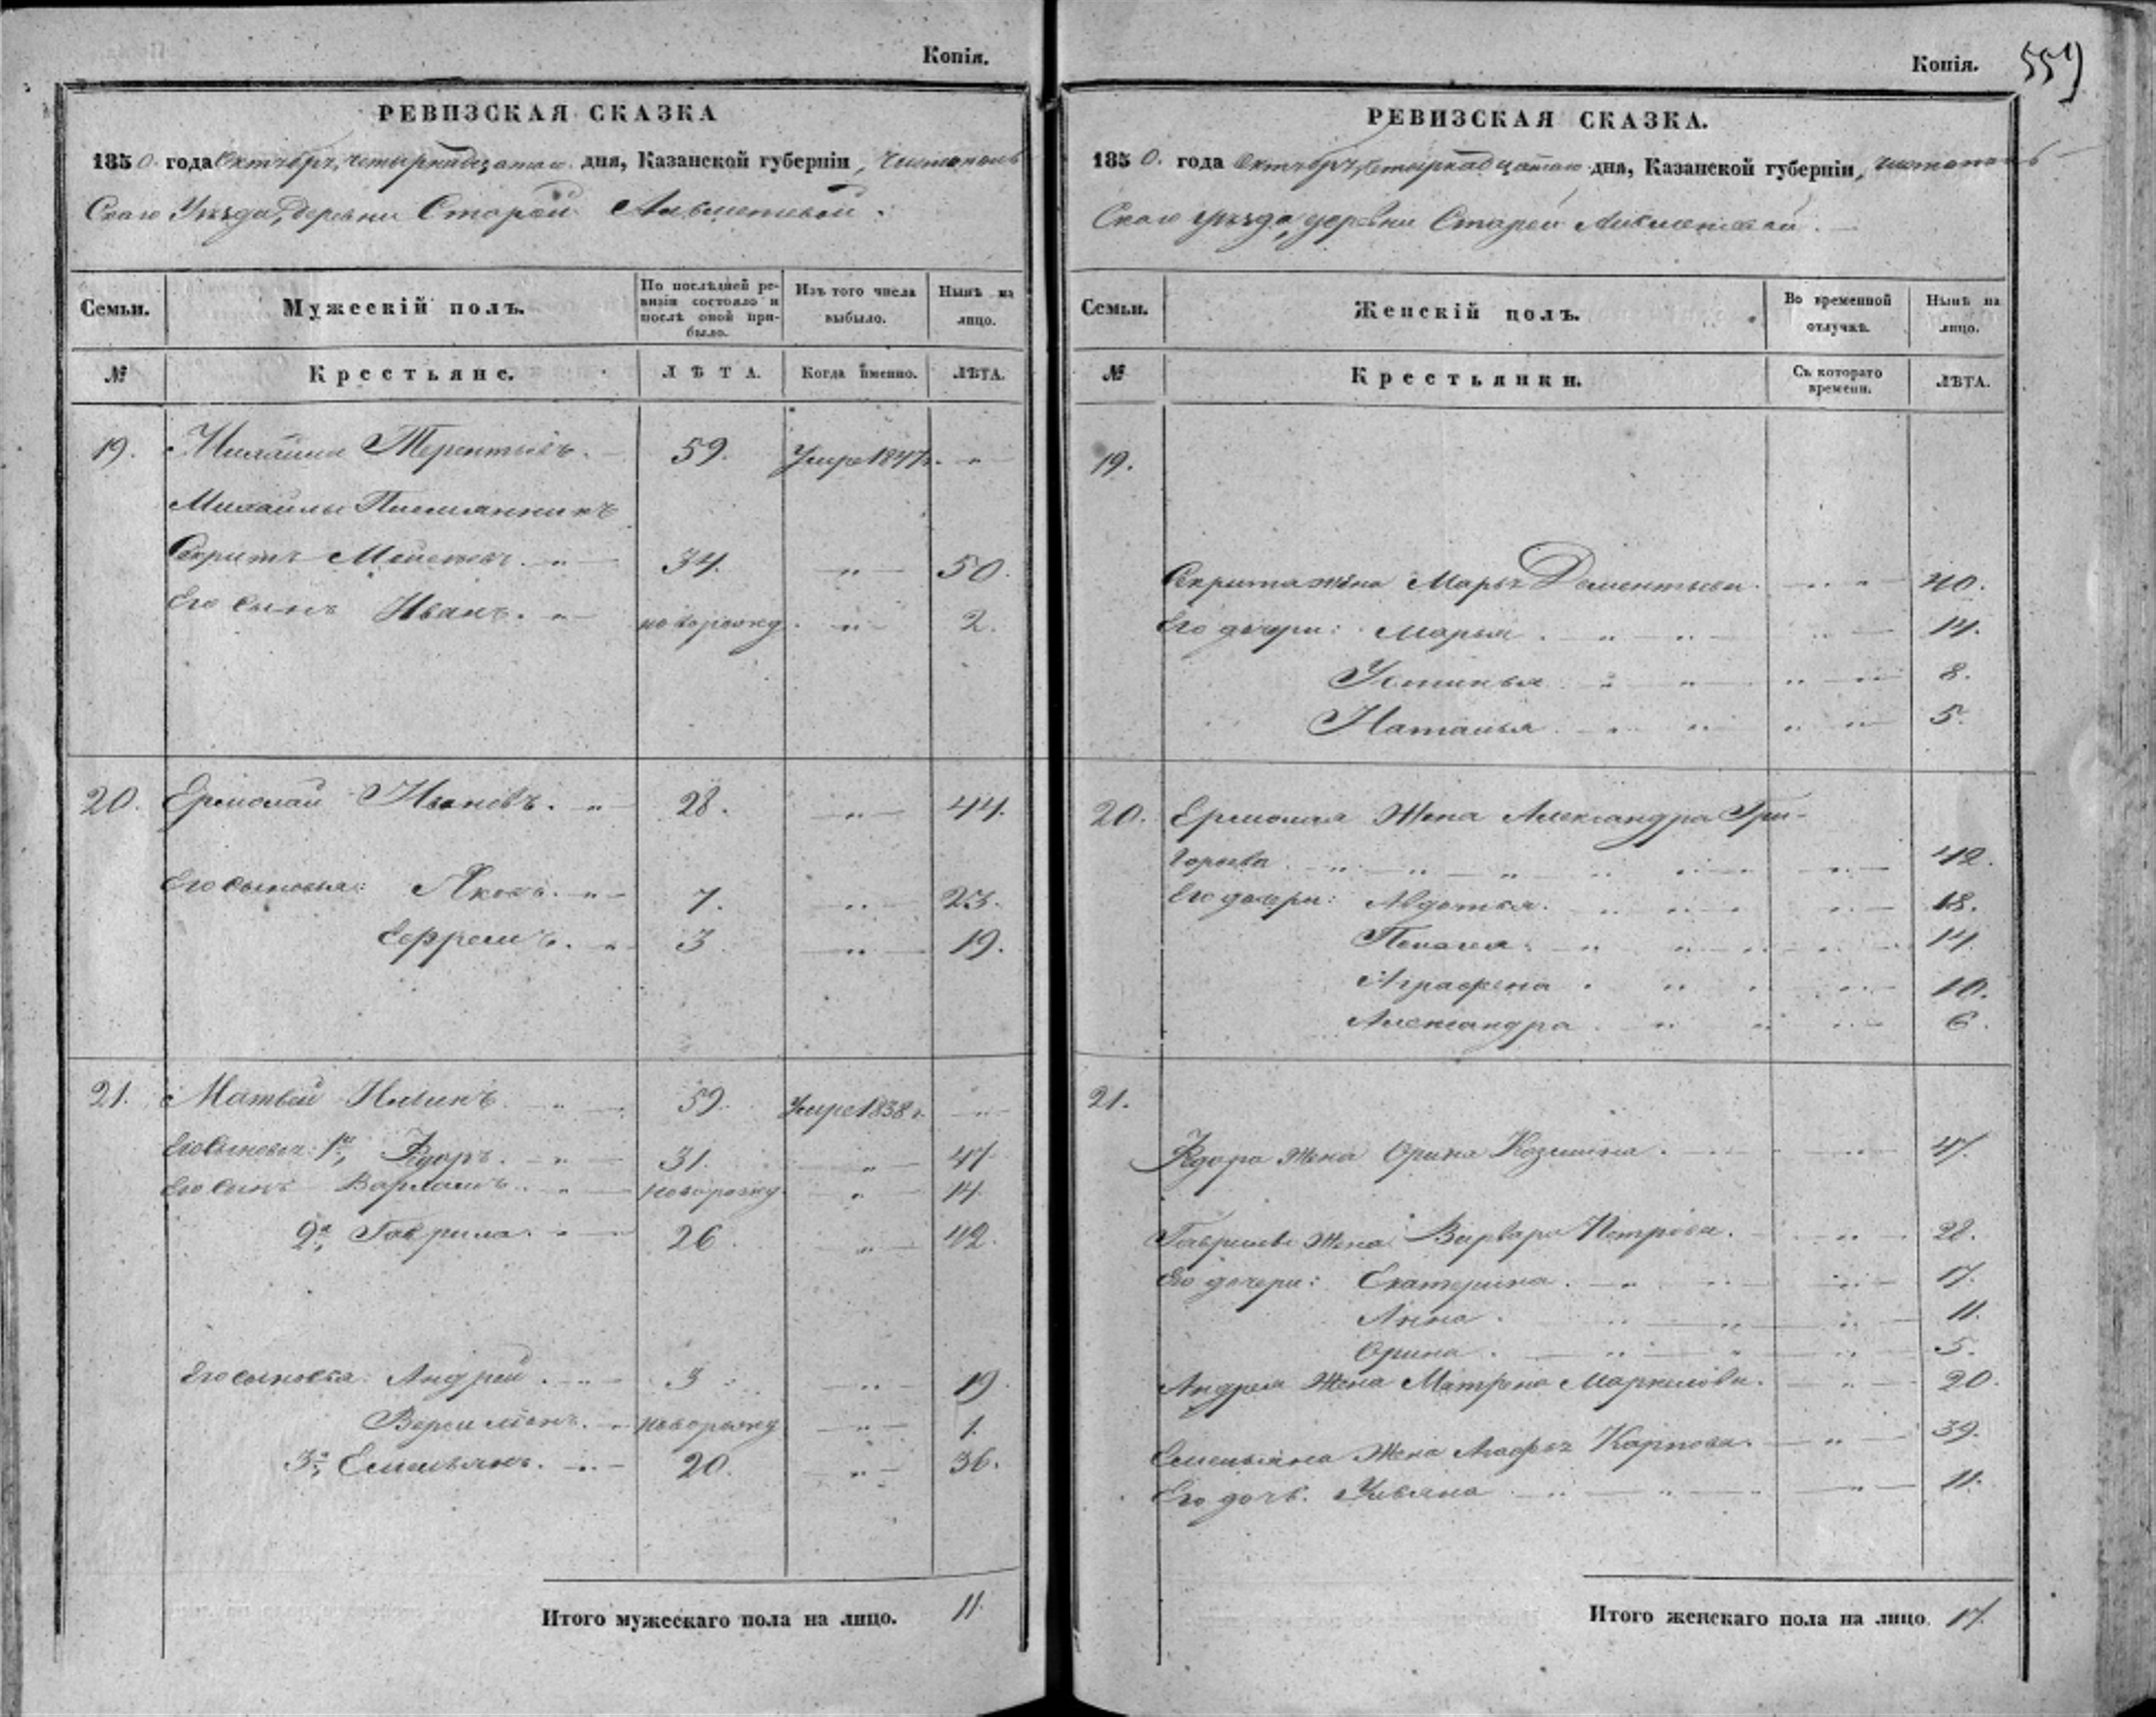 Копія.
РЕВИЗСКАЯ СКАЗКА
1850. года Октября, четырнадцатаго дня, Казанской губерніи, Чистополь
Скаго Уѣзда, деревни Старой
Семьи. Мужескій полъ. По послѣдней ревизіи состояло и послѣ оной прибыло. Изъ того числа выбыло. Нынѣ на лицо.
№ Крестьяне. ЛѢТА. Когда именно. ЛѢТА.
19. Михайла Терентьевъ. 59. Умре 1847 г. "
Михайлы Племянникъ
34. " 50.
Его сынъ Иванъ. " новорожд. " 2.
20. Ермолай Ивановъ. " 28. " 44.
Его сыновья: Яковъ. " 7. " 23.
Ефремъ. " 3 " 19.
21. Матвей Никинъ " 59. Умре 1838 г. "
Его сыновья: 1й, Ѳедоръ. " 31. " 47
Его сынъ Варламъ. " новорожд. " 14.
2й, Гаврила. " 26. " 42.
Его сыновья: Андрей. " 3 " 19.
новорожд " 1.
3й, Емельянъ. " 20. " 36.
Итого мужескаго пола на лицо. 11.
Копія.
РЕВИЗСКАЯ СКАЗКА.
1850. года Октября, четырнадцатаго дня, Казанской губерніи, Чистополь
Скаго уѣзда, деревни Старой
Семьи. Женскій полъ. Во временной отлучкѣ. Нынѣ на лицо.
№ Крестьянки. Съ котораго времени. ЛѢТА.
19.
жена Марья Дементьева. " 40.
Его дочери: Марья. " " " 14.
Устинья " " " 8.
Наталья " " " 5.
20. Ермолая Жена Александра Гри-
горьева " " " 42.
Его дочери: Авдотья. " " " 18.
Пелагея. " " " 14.
Аграфена. " " " 10.
Александра. " " " 6.
21.
Ѳедора жена Орина Козмина. " 47.
Гаврилы Жена Варвара Петрова. " 28.
Его дочери: Екатерина. " " " 17.
Анна. " " " 11.
Орина. " " " 5.
Андрея Жена Матрена Маркелова. " 20.
Емельяна Жена Карпова. " 39.
Его дочь. Ульяна " " " 11.
Итого женскаго пола на лицо 17.